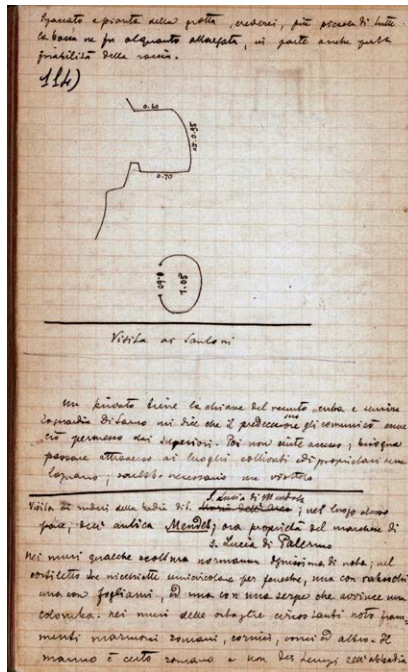 Spaccato e pianta della grotta, crederei, più piccola di tutte
la bocca ne fu alquanto allargata, in parte anche per la
friabilità della roccia.
114)
0.40
0.95
0.70
0.60
1.08
Visita ai Santoni
un privato tiene la chiave del
mi dice che il predecessore gli comunicò
ciò permesso dai superiori. Poi non accesso, bisogna
passare attraverso ai luoghi coltivati dei proprietari
necessario un viottolo
S. Lucia di Mendola
Visita di ruderi della badia di S. ; nel luogo
pare, dell'antica Mendes; ora proprietà del marchese di
S. Lucia di Palermo
Nei muri qualche scoltura normanna di nota; nel
cortiletto due nicchiette semicircolari per finestre, una con rabeschi
una con fogliami, ed una con una serpe che avvince una
colomba. Nei muri delle circostanti noto fram-
menti marmorei romani, cornici, ed altro. Il
marmo è certo romano e non dei tempi dell'abbadia